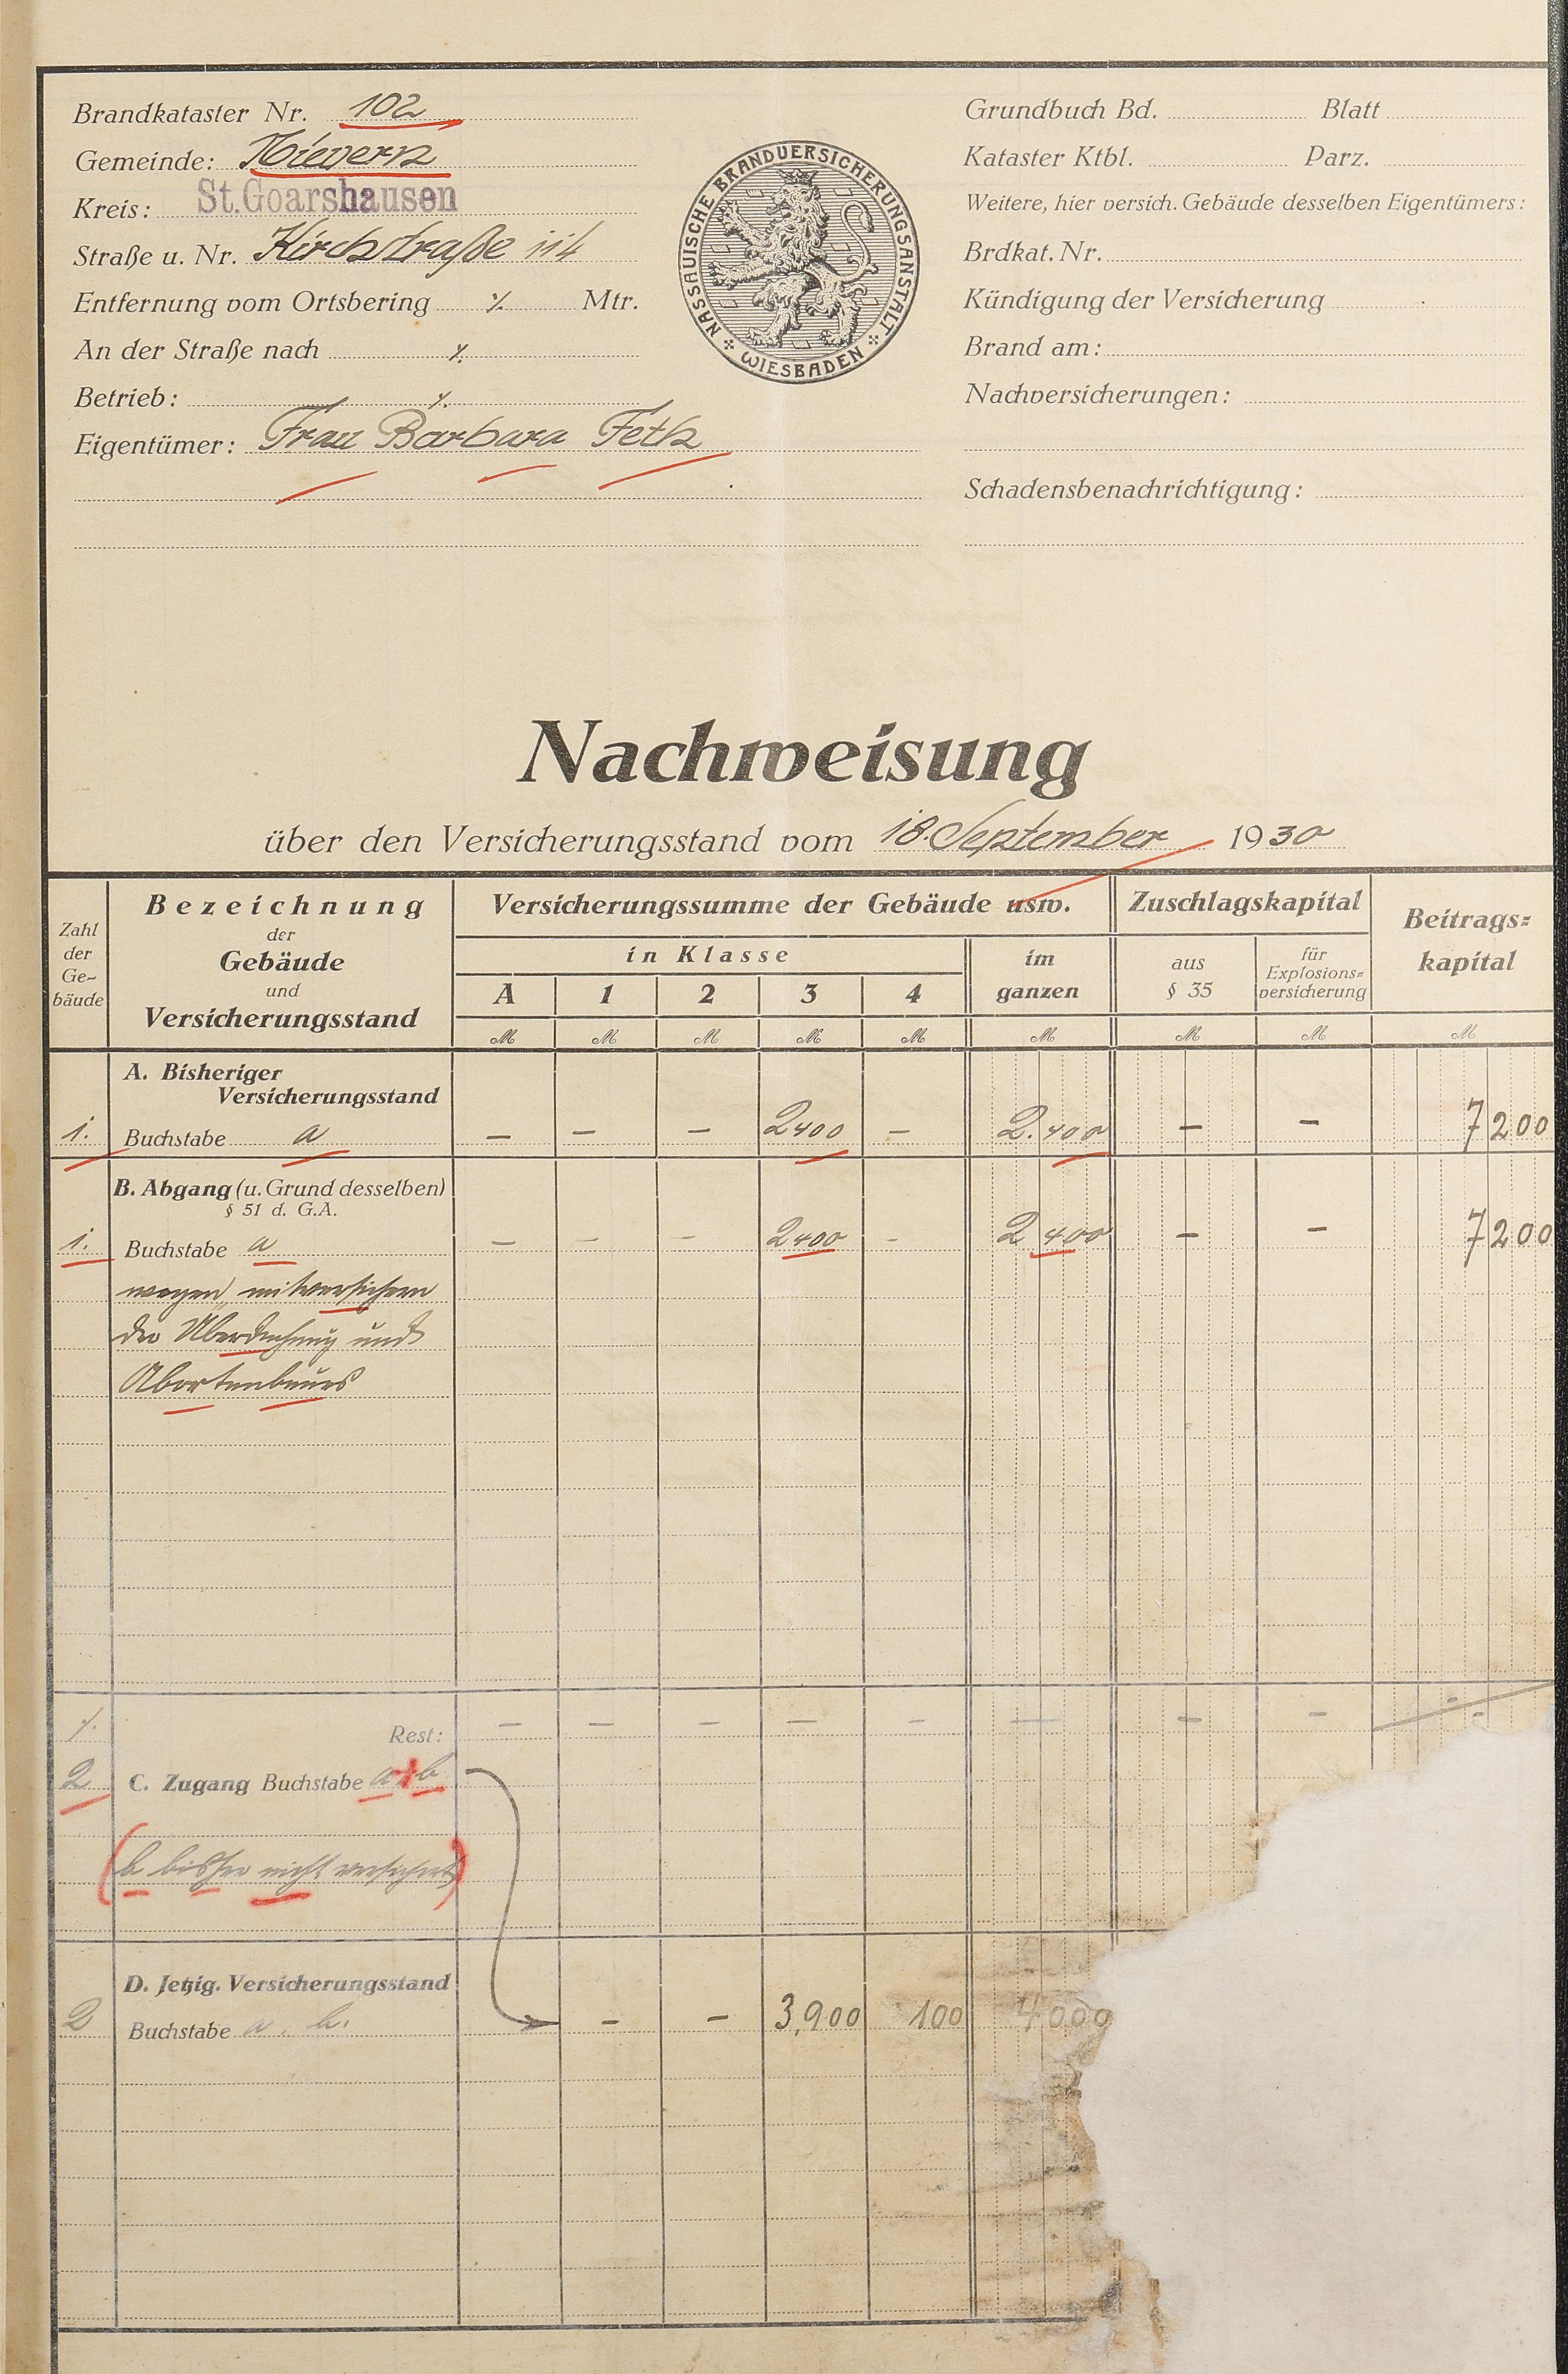 Brandkataster Nr. 102
Gemeinde: Nievern
Kreis: St. Goarshausen
Straße u. Nr. Kirchstraße 114
Entfernung vom Ortsbering ./. Mtr.
An der Straße nach ./.
Betrieb: ./.
Eigentümer: Frau Barbara Feth
NASSAUISCHE BRANDVERSICHERUNGSANSTALT
WIESBADEN
Grundbuch Bd. Blatt
Kataster Ktbl. Parz.
Weitere, hier versich. Gebäude desselben Eigentümers:
Brdkat. Nr.
Kündigung der Versicherung
Brand am:
Nachversicherungen:
Schadensbenachrichtigung:
Nachweisung
über den Versicherungsstand vom 18. September 1930
Zahl der Ge- bäude
Bezeichnung der Gebäude und Versicherungsstand
Versicherungssumme der Gebäude usw.
in Klasse
A 1 2 3 4
im ganzen
Zuschlagskapital
aus § 35
für Explosions= versicherung
Beitrags= kapital
M M M M M M M M M
A. Bisheriger
Versicherungsstand
1. Buchstabe a – – – 2400 – 2.400 – – 7200
B. Abgang (u. Grund desselben)
§ 51 d. G.A.
1. Buchstabe a – – – 2400 - 2400 – – 7200
wegen mitversichern
der Überdachung und
Abortanbaues
./. Rest: – – – – – – – – -
2 C. Zugang Buchstabe a + b
(b bisher nicht versichert)
D. Jetzig. Versicherungsstand
2 Buchstabe a. b. – – 3,900 100 4000